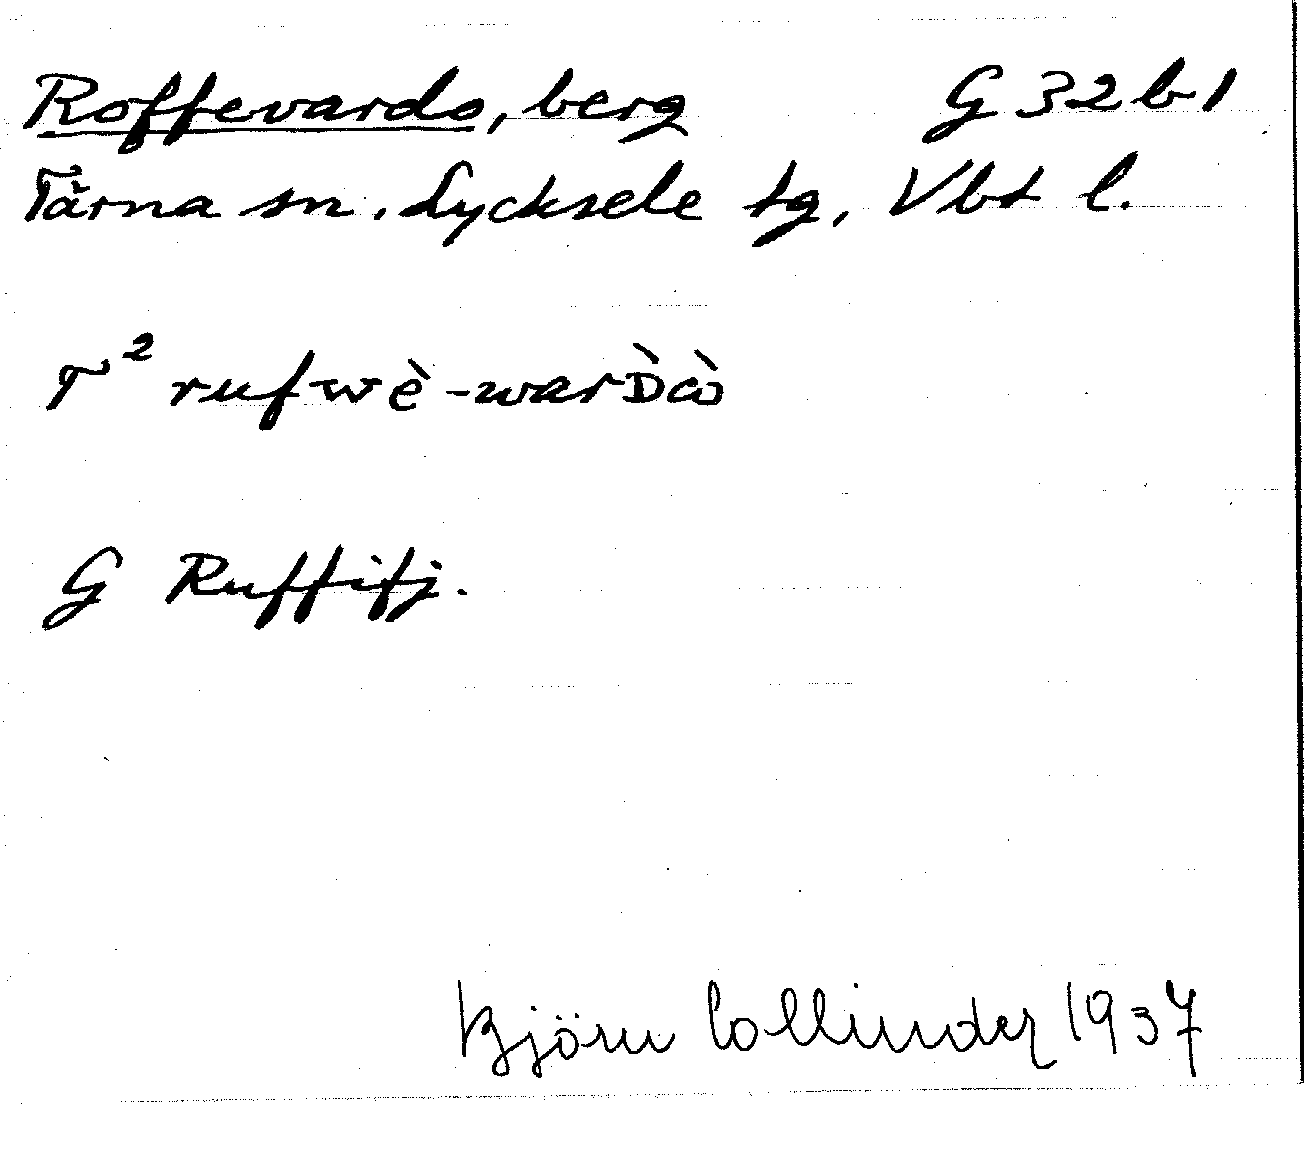 Roffevardo, berg G 32 b 1
Tärna sn. Lycksele tg, Vbt l.
T² rufwè-warD̀cò
G Ruffifj.
Björn Collinder 1937